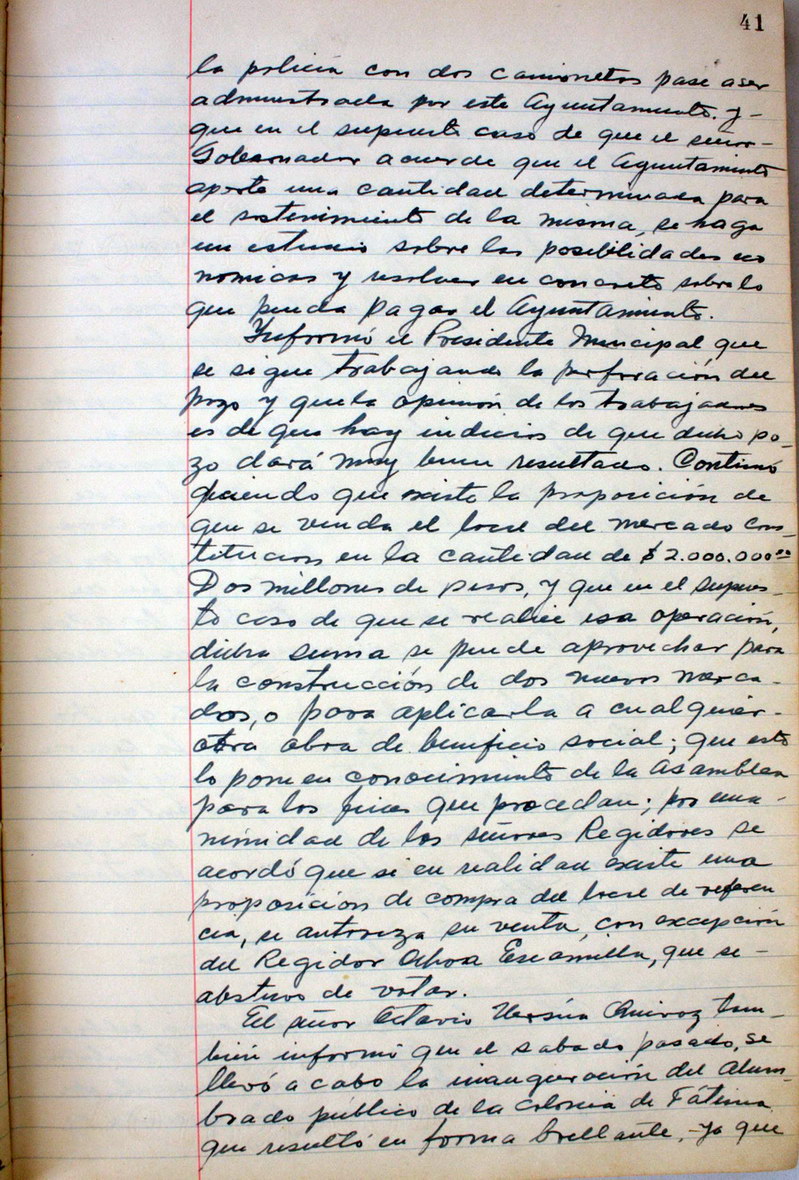 41
la policía con dos camionetas pase a ser
administrada por este Ayuntamiento. y-
que en el supuesto caso de que el señor-
Gobernador acuerde que el Ayuntamiento
aporte una cantidad determinada para
el sostenimiento de la misma, se haga
un estudio sobre las posibilidades eco
nomicas y resolver en concreto sobre lo
que pueda pagar el Ayuntamiento.
Informó el Presidente Municipal, que
se sigue trabajando la perforación del
pozo y que la opinión de los trabajadores
es de que hay indicios de que dicho po-
zo dará muy buen resultado. Continuó
diciendo que existe la proposición de
que se venda el local del mercado Cons
titucion en la cantidad de $ 2.000.000.00
Dos millones de pesos, y que en el supues-
to caso de que se realice esa operación,
dicha suma se puede aprovechar para
la construcción de dos nuevos merca-
dos, o para aplicarla a cualquier-
otra obra de beneficio social; que esto
lo pone en conocimiento de la Asamblea
para los fines que procedan; por una-
nimidad de los señores Regidores se
acordó que si en realidad existe una
proposición de compra del local de referen
cia, se autoriza su venta, con excepción
del Regidor Ochoa Escamilla, que se-
abstuvo de votar.
El señor Octavio Quiroz tam-
bién informó que el sabado pasado, se
llevó a cabo la inauguración del Alum-
brado público de la Colonia de Fátima
que resultó en forma brillante, ya que